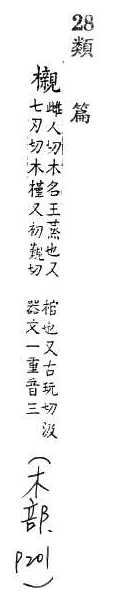 28
類篇
櫬
雌人切木名王蒸也又
七刃切木槿又初覲切
棺也又古玩切汲
器文一重音三
（木部. p201）